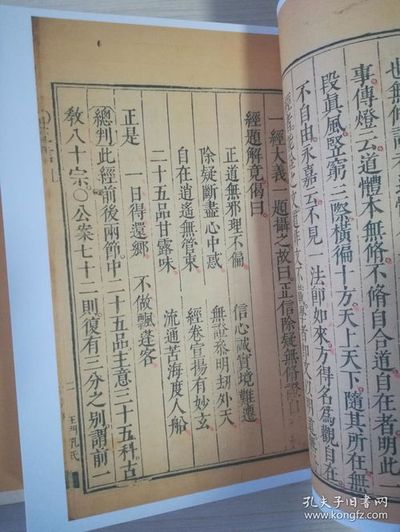 事傳燈云道體本無脩不脩自合道自在者明此一
段眞風竪窮三際橫徧十方天上天下隨其所在無
不自由永嘉云不見一法卽如來方得名爲觀自在
一經大義一題攝之故曰正信除疑無脩
經題解竟偈曰
正道無邪理不偏 信心誠實境難遷
除疑斷盡心中惑 無證明劫外天
自在逍遙無管束 經卷宣揚有妙玄
二十五品甘露味 流通苦海度人船
正是 一日得還鄉 不做飄蓬客
總判此經前後兩節中二十五品主意三十五科古
教八十宗○公案七十二則復有三分之別謂前一
孔夫子旧书网
www.kongfz.com